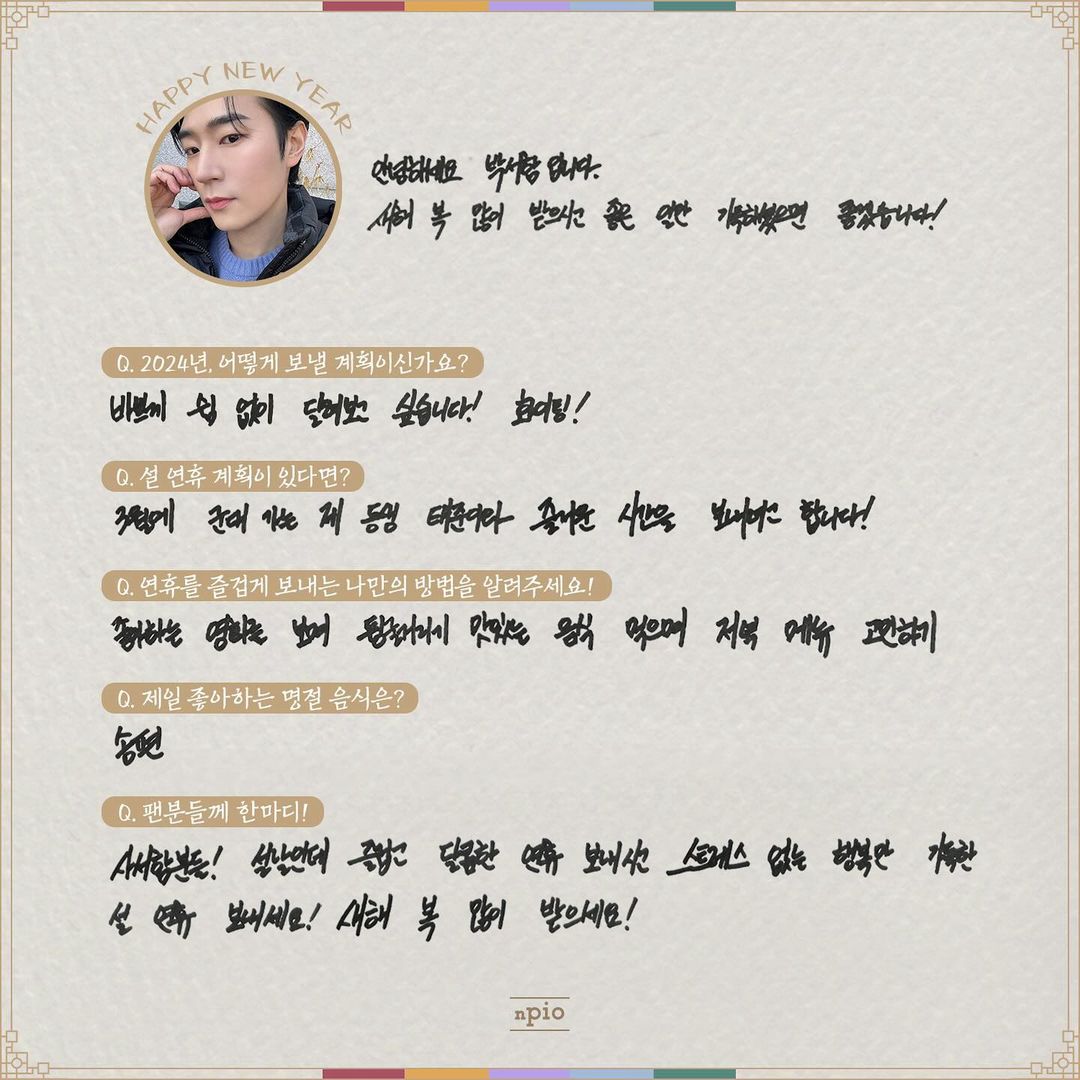 HAPPY NEW YEAR
안녕하세요 박서함 입니다.
새해 복 많이 받으시고 좋은 일만 가득하셨으면 좋겠습니다!
Q. 2024년, 어떻게 보낼 계획이신가요?
바쁘게 쉼 없이 달려보고 싶습니다! 화이팅!
Q. 설 연휴 계획이 있다면?
군대 가는 제 동생 태준이와 즐거운 시간을 보내려고 합니다!
Q. 연휴를 즐겁게 보내는 나만의 방법을 알려주세요!
좋아하는 영화를 보며 맛있는 음식 먹으며 저녁 메뉴 고민하기
Q. 제일 좋아하는 명절 음식은?
송편
Q. 팬분들께 한마디!
설날인데 즐겁고 달콤한 연휴 보내시고 스트레스 없는 행복만 가득한
설 연휴 보내세요! 새해 복 많이 받으세요!
npio